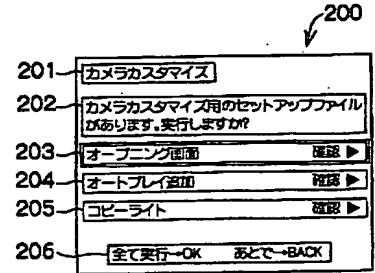 200
201 カメラカスタマイズ
202 カメラカスタマイズ用のセットアップファイル
があります。実行しますか?
203 オープニング画面 確認 ▶
204 オートプレイ追加 確認 ▶
205 コピーライト 確認 ▶
206 全て実行→OK あとで→BACK